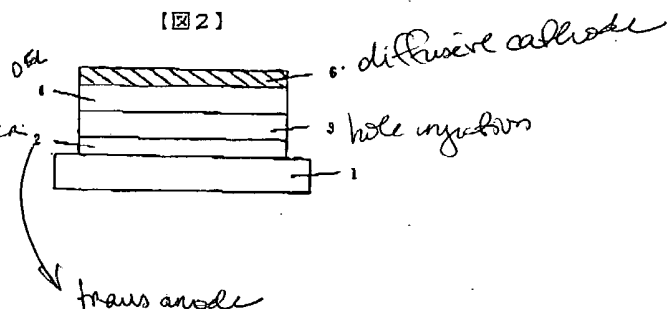 【図2】
6. diffusive cathode
OEL
3 hole injection
2
1
trans anode